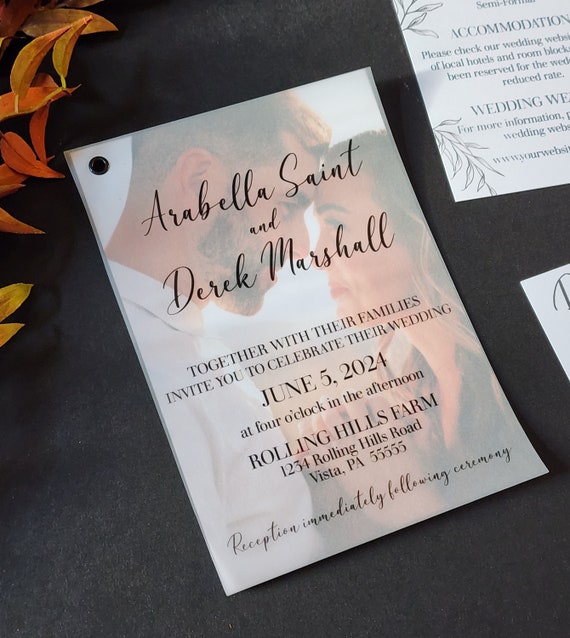 Arabella Saint
and
Derek Marshall
TOGETHER WITH THEIR FAMILIES
INVITE YOU TO CELEBRATE THEIR WEDDING
JUNE 5, 2024
at four o'clock in the afternoon
ROLLING HILLS FARM
1234 Rolling Hills Road
Vista, PA 55555
Reception immediately following ceremony
Semi-Formal
ACCOMMODATION
Please check our wedding websi
of local hotels and room block
been reserved for the wedd
reduced rate.
WEDDING WE
For more information, p
wedding webs
www.yourwebsit